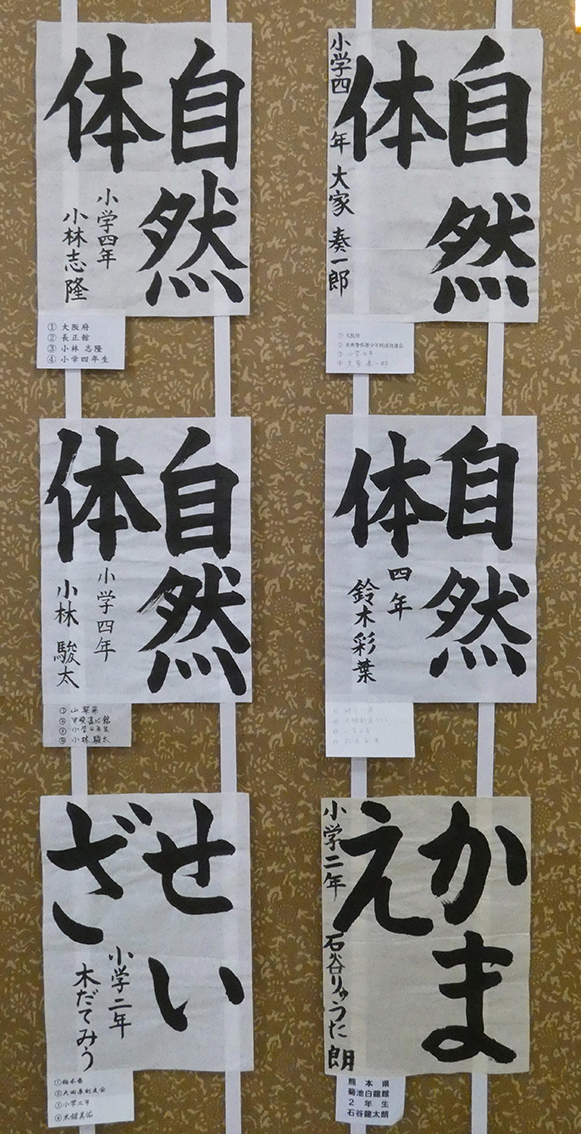 自然
体
小学四年
小林志隆
① 大阪府
② 長正館
③ 小林 志隆
④ 小学四年生
自然
体
小学四年 大家奏一郎
① 大阪府
自然
体
小学四年
小林 駿太
③ 小学四年生
④ 小林 駿太
自然
体
四年
鈴木彩葉
せい
ざ
小学二年
木だてみう
① 栃木県
③ 小学二年
かま
え
小学二年 石谷りゅうた朗
熊本県
菊池白龍館
2年生
石谷龍太朗